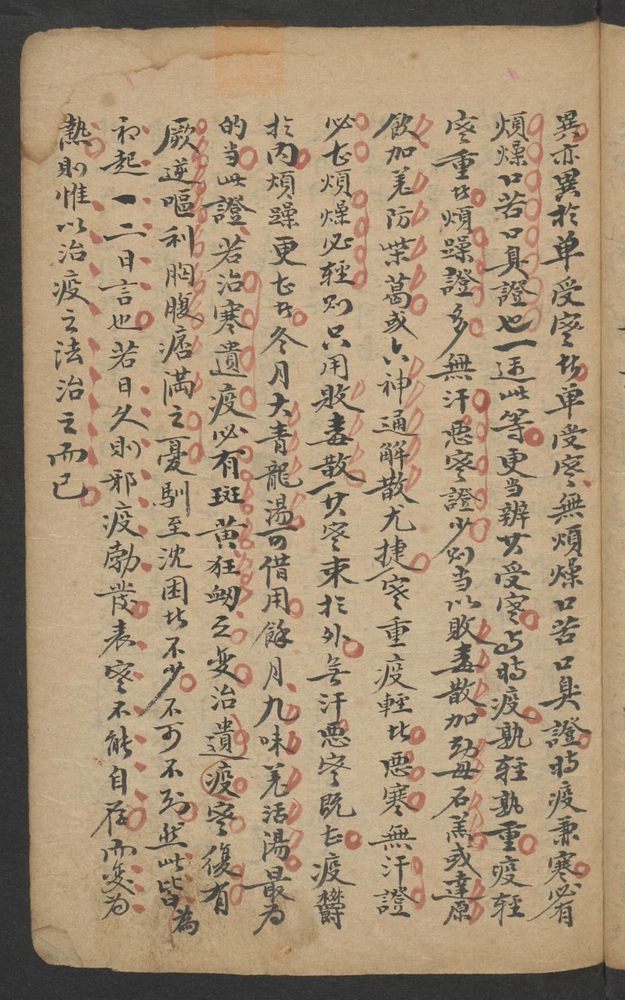 異亦異於单受寒者单受寒無煩燥口苦口臭證時疫兼寒必有
煩燥口苦口臭證也一遇此等更当辨其受寒与時疫孰轻孰重疫轻
寒重者煩躁證多無汗悪寒證少则当以败毒散加知母石羔或達原
飲加羌防柴葛或六神通解散尤捷寒重疫輕者悪寒無汗證
必甚煩燥必轻则只用败毒散一其寒束於外無汗悪寒既甚疫欝
於内煩躁更甚者冬月大青龍湯可借用餘月九味羌活湯最为
的当此證若治寒遺疫必有斑黄狂衄之变治遺疫寒復有
厥逆嘔利胸腹痞满之憂馴至沈困者不少不可不别然此皆為
初起一二日言也若日久则邪疫勃發表寒不能自存而变为
熱则惟以治疫之法治之而已